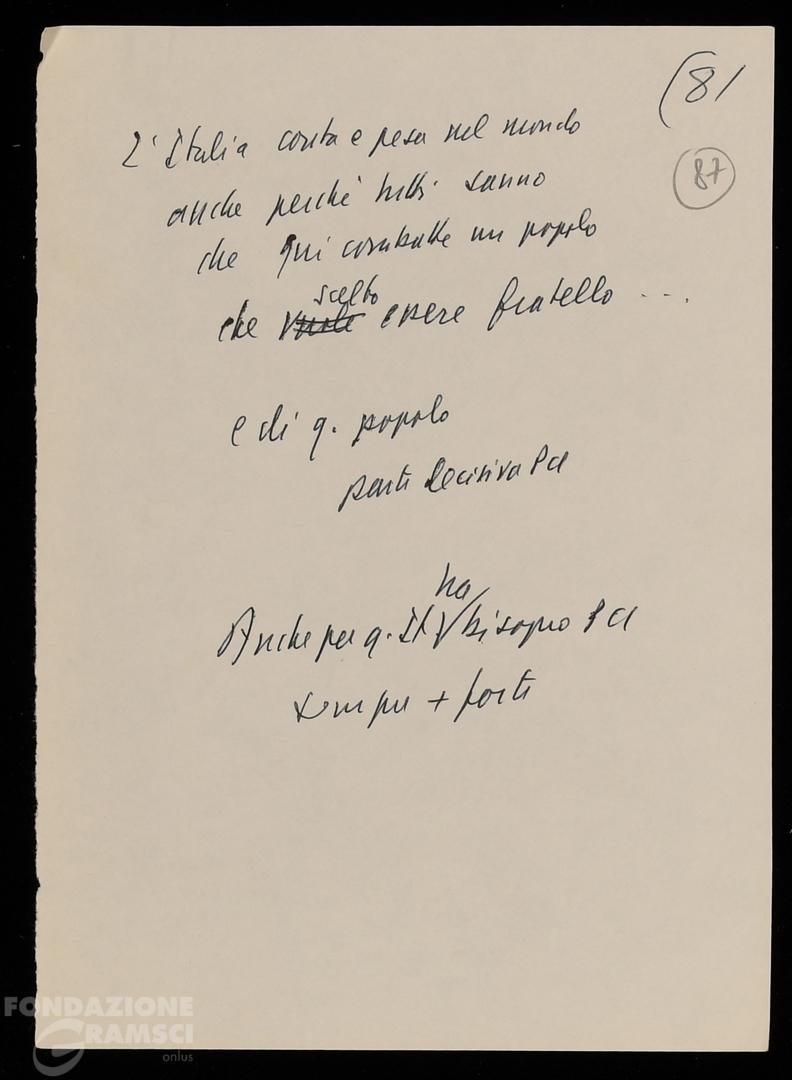 (81
87
L'Italia conta e pesa nel mondo
anche perchè tutti sanno
che qui combatte un popolo
scelto
che vuole essere fratello ...
e di q. popolo
parte decisiva Pci
ha
Anche per q. It bisogno Pci
sempre + forte
FONDAZIONE
GRAMSCI
onlus